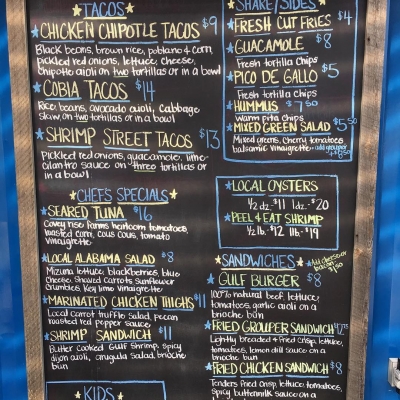 TACOS
CHICKEN CHIPOTLE TACOS $9
Black beans, brown rice, poblano & corn,
pickled red onions, lettuce, cheese,
chipotle aioli on two tortillas or in a bowl
COBIA TACOS $14
Rice beans, avocado aioli, cabbage
slaw, on two tortillas or in a bowl
SHRIMP STREET TACOS $13
Pickled red onions, guacamole, lime-
cilantro sauce on three tortillas or
in a bowl
CHEFS SPECIALS
SEARED TUNA $16
Covey rise farms heirloom tomatoes,
roasted corn, cous cous, tomato
vinaigrette
LOCAL ALABAMA SALAD $8
Mizuna lettuce, blackberries, blue
cheese, shaved carrots, sunflower
crumbles, key lime vinaigrette
MARINATED CHICKEN THIGHS $11
Local carrot truffle salad, pecan
roasted red pepper sauce
SHRIMP SANDWICH $11
Butter cooked Gulf shrimp, spicy
aioli, arugula salad, brioche
bun
KIDS
SHARE/SIDES
FRESH CUT FRIES $4
GUACAMOLE $8
Fresh tortilla chips
PICO DE GALLO $5
Fresh tortilla chips
HUMMUS $7.50
Warm pita chips
MIXED GREEN SALAD $5.50
Mixed greens, cherry tomatoes
balsamic vinaigrette - add grouper
LOCAL OYSTERS
1/2 dz. $11 1 dz. $20
PEEL & EAT SHRIMP
1/2 lb. $12 1 lb. $19
SANDWICHES
Add cheese or bacon $1.50
GULF BURGER $8
100% natural beef, lettuce,
tomatoes, garlic aioli on a
brioche bun
FRIED GROUPER SANDWICH
Lightly breaded & fried crisp, lettuce,
tomatoes, lemon dill sauce on a
brioche bun
FRIED CHICKEN SANDWICH $8
Tenders fried crisp, lettuce, tomatoes,
spicy buttermilk sauce on a